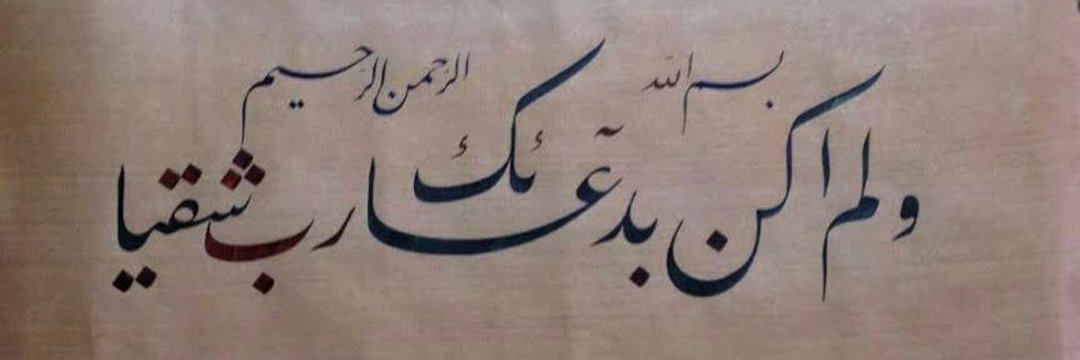 بسم الله الرحمن الرحيم
ولم اكن بدعائك رب شقيا